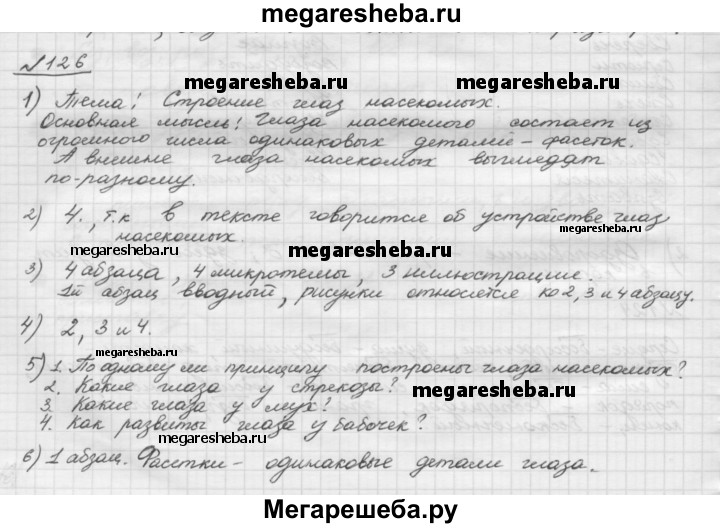 megaresheba.ru
№126
megaresheba.ru megaresheba.ru
1) Тема: Строение глаз насекомых.
Основная мысль: Глаза насекомого состоят из
огромного числа одинаковых деталей – фасеток.
А внешне глаза насекомых выглядят
по-разному.
2) 4., т.к в тексте говорится об устройстве глаз
насекомых.
megaresheba.ru
megaresheba.ru megaresheba.ru
3) 4 абзаца, 4 микротемы, 3 иллюстрации.
1й абзац вводный, рисунки относятся ко 2, 3 и 4 абзацу.
4) 2, 3 и 4.
megaresheba.ru
5) 1. По одному ли принципу построены глаза насекомых?
2. Какие глаза у стрекозы?
megaresheba.ru
3. Какие глаза у мух?
4. Как развиты глаза у бабочек?
megaresheba.ru
6) 1 абзац. Фасетки – одинаковые детали глаза.
Мегарешеба.ру